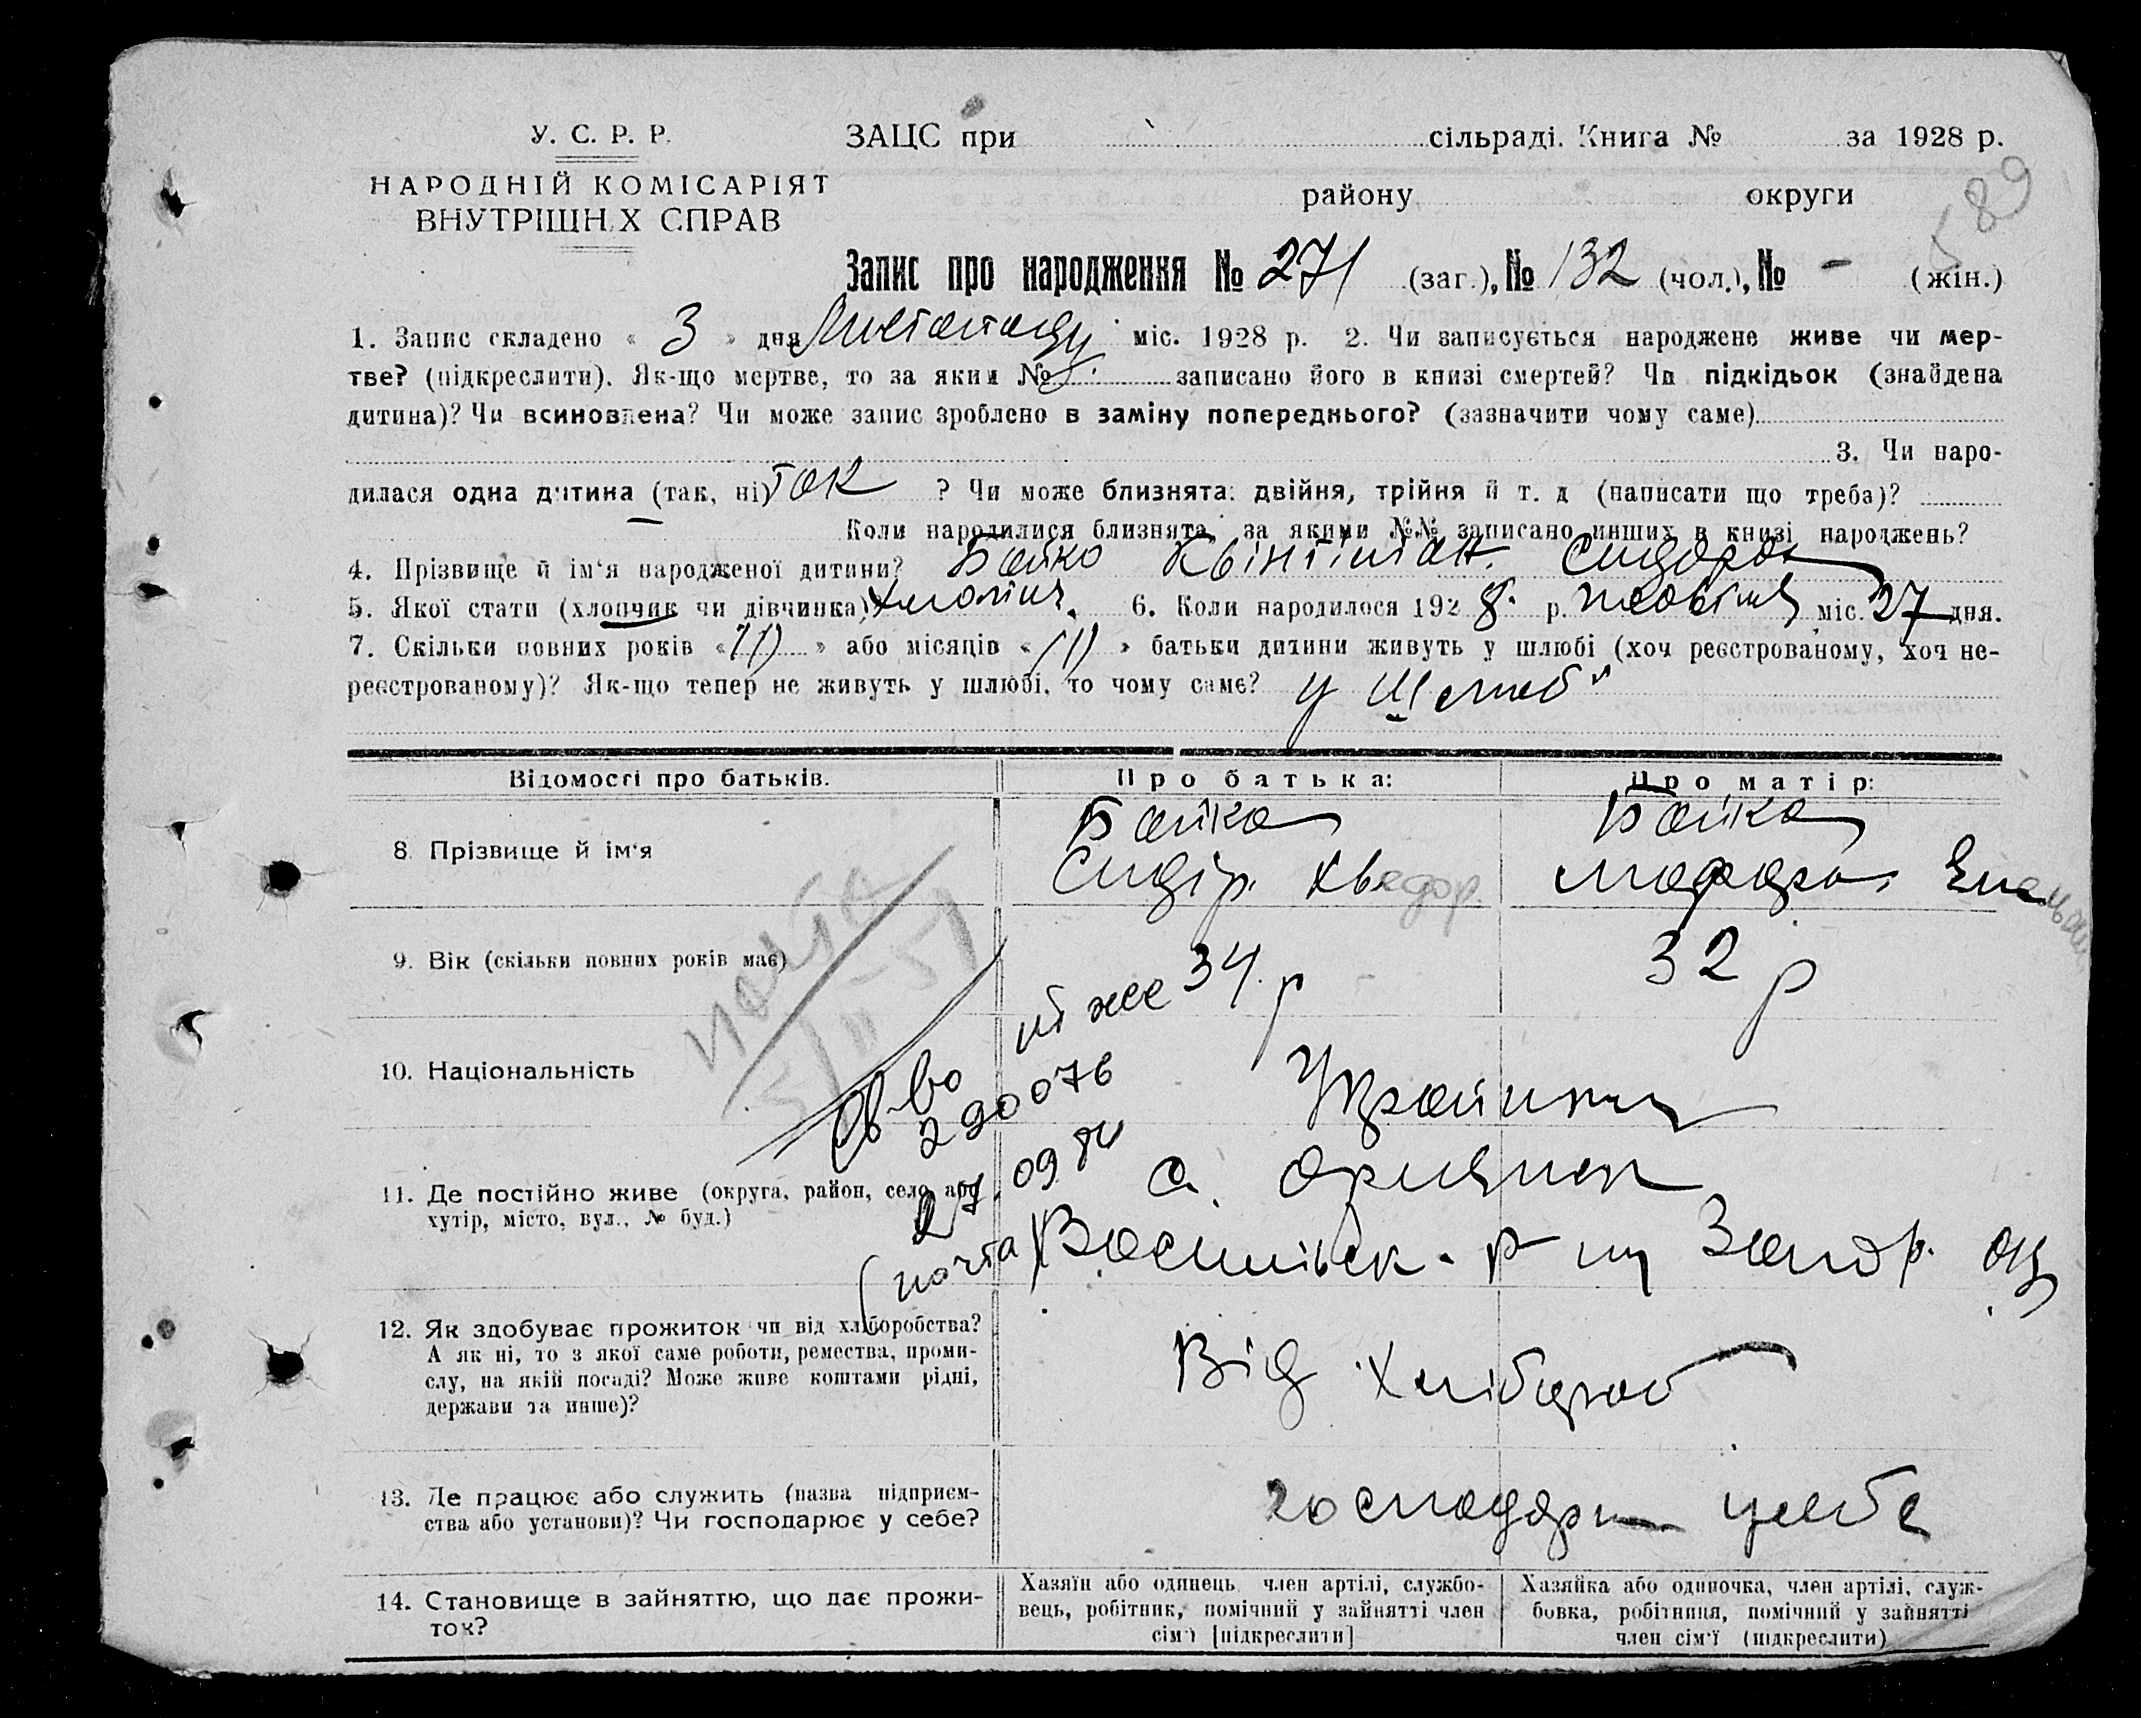 У. С. Р. Р.
НАРОДНІЙ КОМІСАРІЯТ
ВНУТРІШН Х СПРАВ
ЗАЦС при сільраді. Книга № за 1928 р.
району округи
589
Запис про народження № 271 (заг.), № 132 (чол.), № - (жін.)
1. Запис складено « 3 » дня Листопаду міс. 1928 р. 2. Чи записується народжене живе чи мер-
тве? (підкреслити). Як-що мертве, то за яким № записано його в книзі смертей? Чи підкідьок (знайдена
дитина)? Чи всиновлена? Чи може запис зроблено в заміну попереднього? (зазначити чому саме)
3. Чи наро-
дилася одна дитина (так, ні) так ? Чи може близнята: двійня, трійня й т. д (написати що треба)?
Коли народилися близнята, за якими №№ записано инших в книзі народжень?
4. Прізвище й ім'я народженої дитини? Бойко Квінтіліан. Сидоров
5. Якої стати (хлопчик чи дівчинка) хлопчик. 6. Коли народилося 1928. р. жовтня міс. 27 дня.
7. Скільки повних років « 11) » або місяців « (11) » батьки дитини живуть у шлюбі (хоч реєстрованому, хоч не-
реєстрованому)? Як-що тепер не живуть у шлюбі, то чому саме? у Шлюбі
Відомості про батьків.
Про батька:
Про матір:
8. Прізвище й ім'я
Бойко
Сидір. Хведор.
Бойко
9. Вік (скільки повних років має)
34. р
32 р
10. Національність
Св-во
290076
Українці
11. Де постійно живе (округа, район, село або
хутір, місто, вул., № буд.)
27. 09
с.
(почта) Василівськ. р-ну Запор. ок
12. Як здобуває прожиток чи від хліборобства?
А як ні, то з якої саме роботи, ремества, проми-
слу, на якій посаді? Може живе коштами рідні,
держави та инше)?
Від хлібороб
13. Де працює або служить (назва підприєм-
ства або установи)? Чи господарює у себе?
господари у себе
14. Становище в зайняттю, що дає прожи-
ток?
Хазяїн або одинець член артілі, службо-
вець, робітник, помічний у зайнятті член
сім'ї [підкреслити]
Хазяйка або одиночка, член артілі, служ-
бовка, робітниця, помічний у зайнятті
член сім'ї (підкреслити)